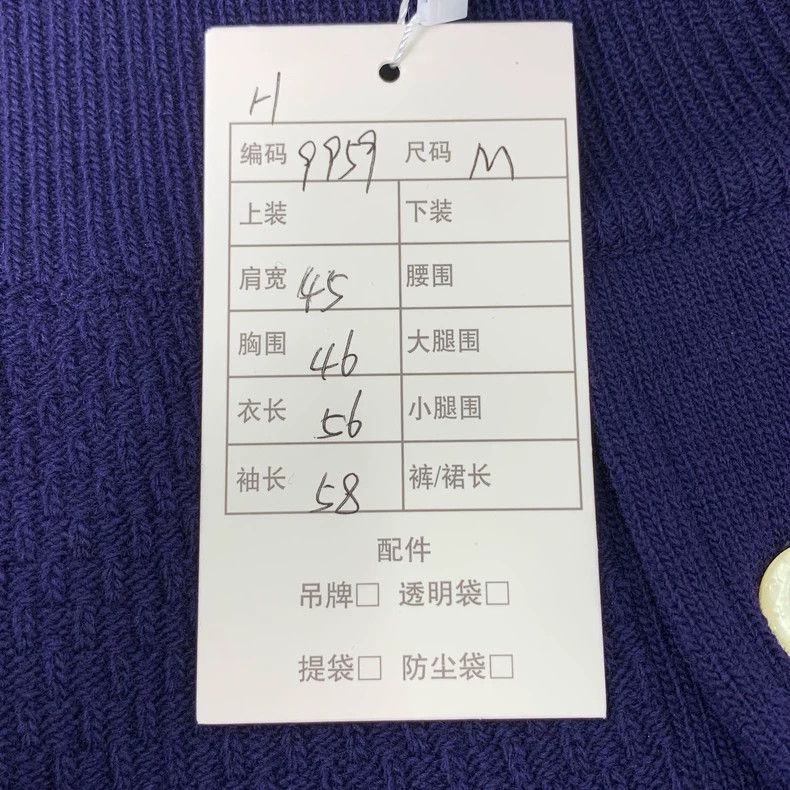 H
编码 9959 尺码 M
上装 下装
肩宽 45 腰围
胸围 46 大腿围
衣长 56 小腿围
袖长 58 裤/裙长
配件
吊牌□ 透明袋□
提袋□ 防尘袋□